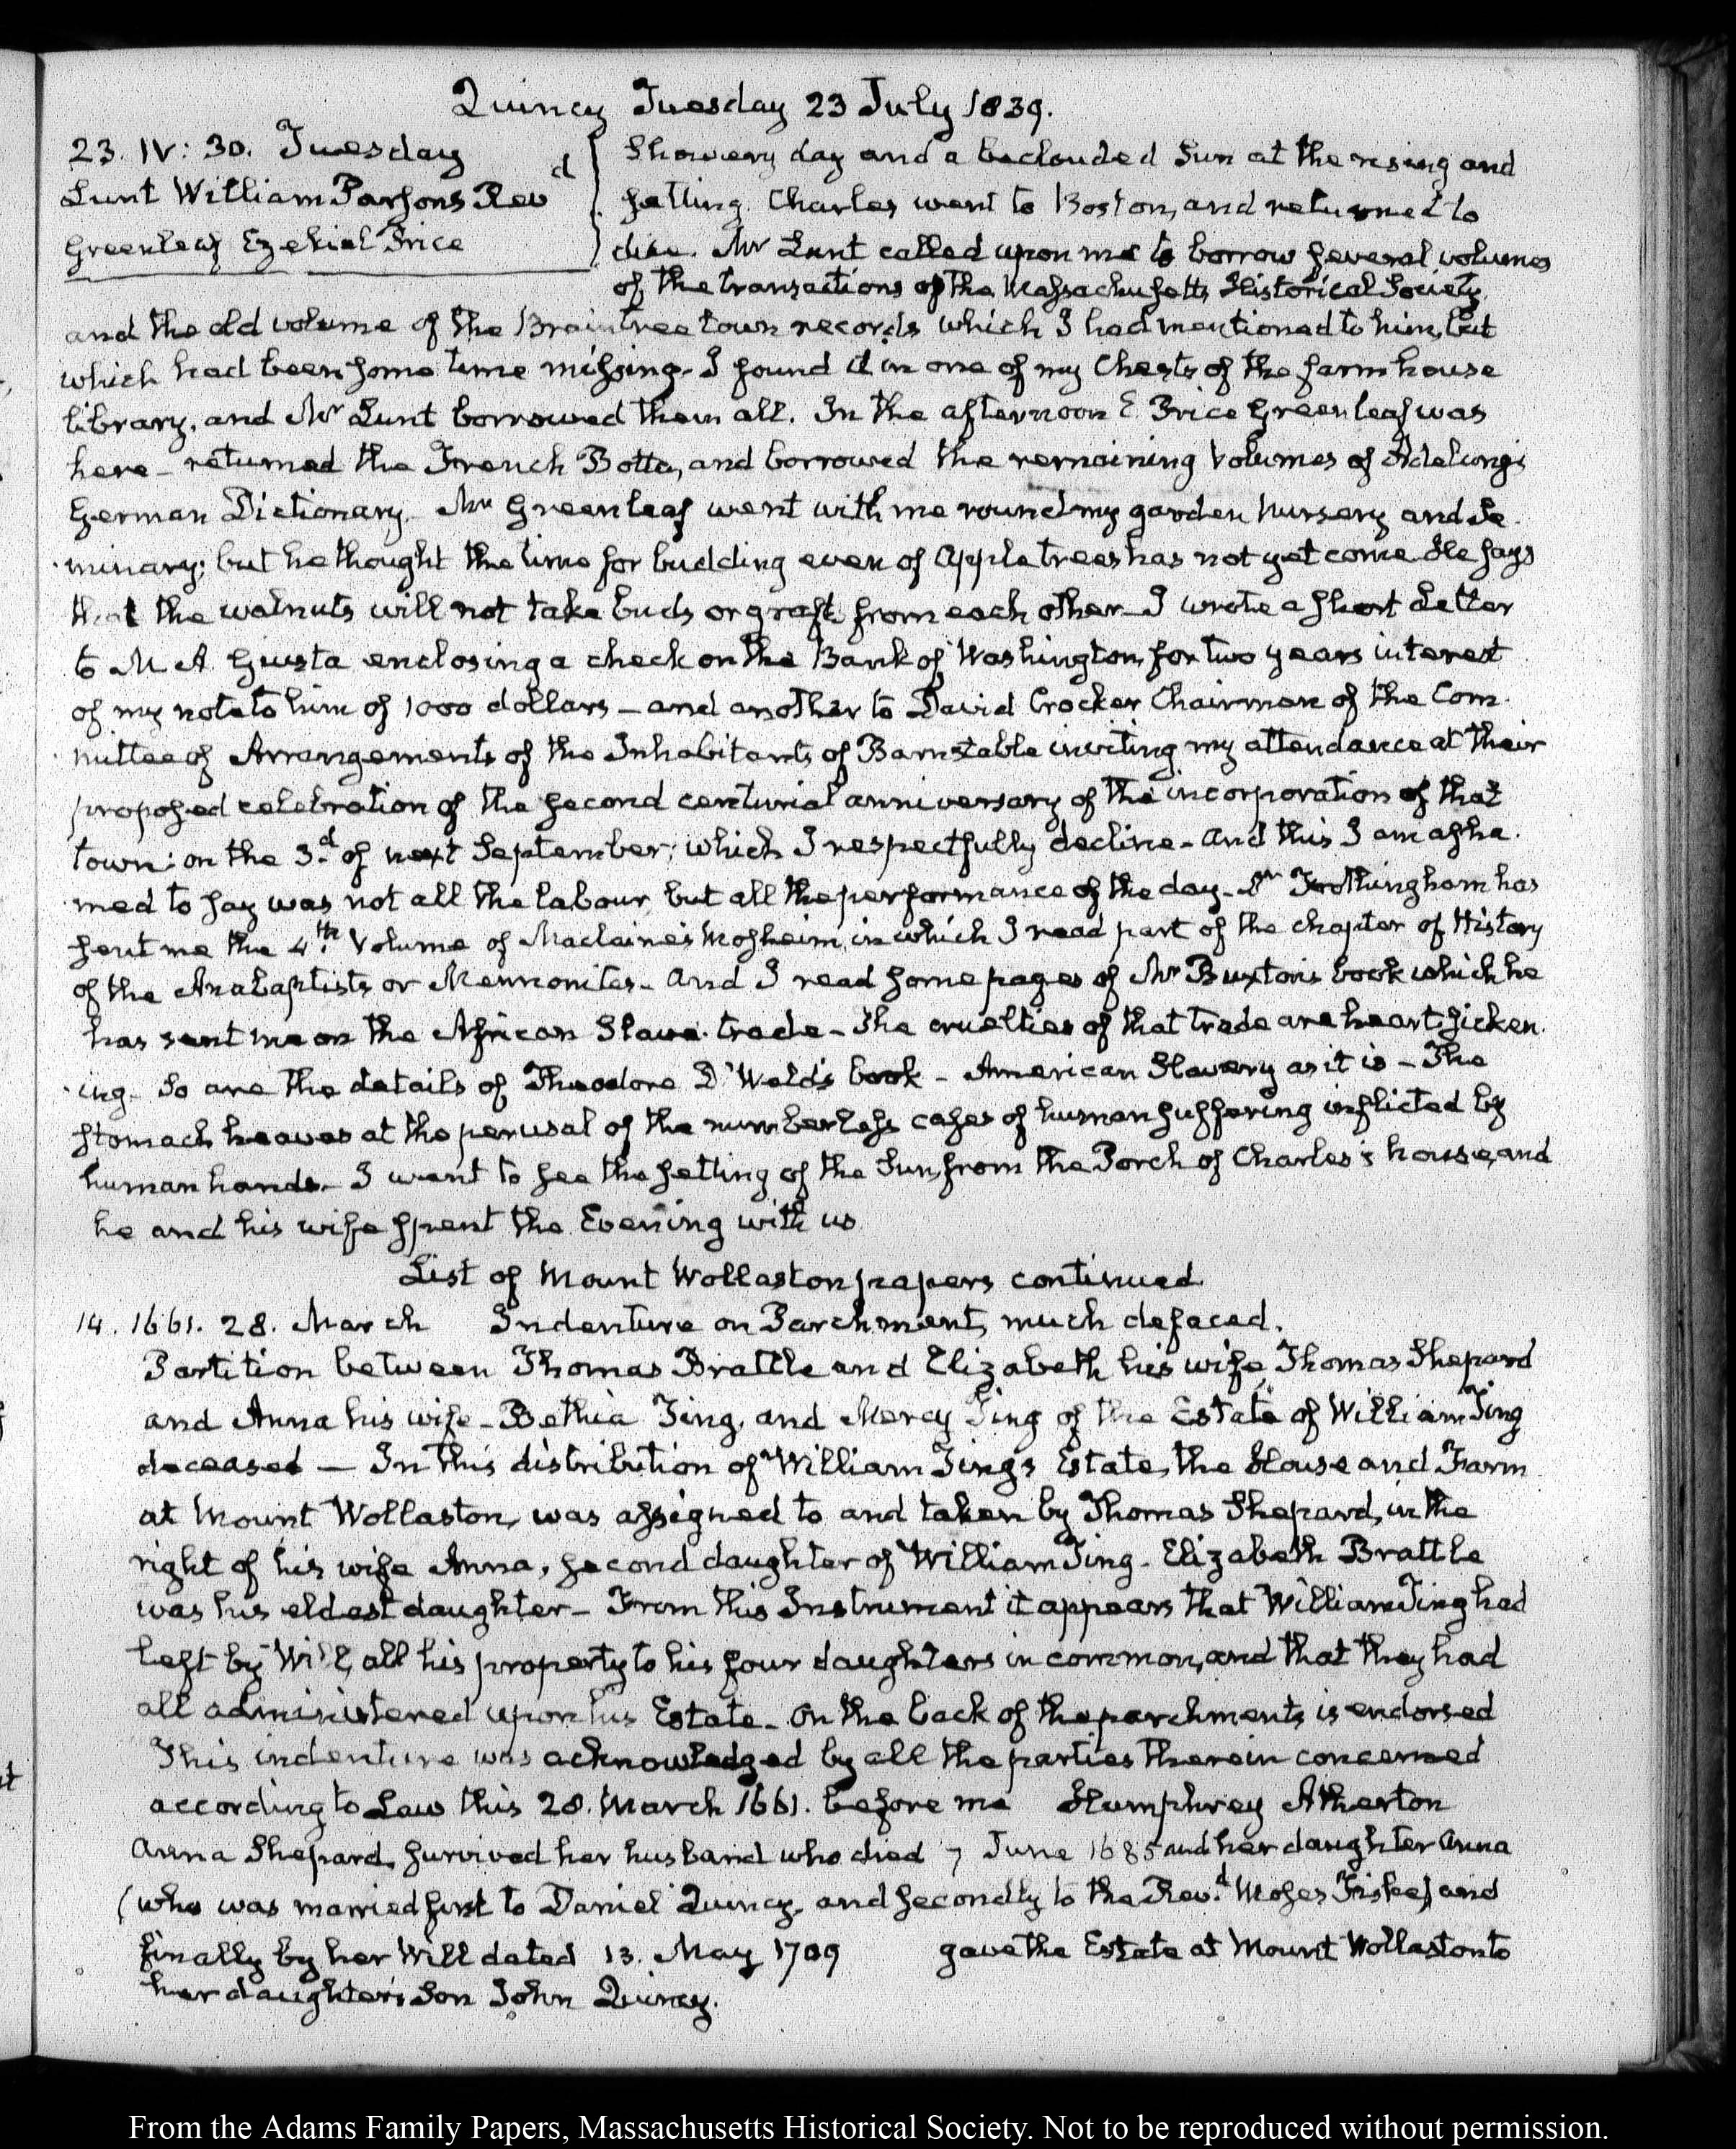 Quincy Tuesday 23 July 1839.
23. IV: 30. Tuesday
Lunt William Parsons Revd
Greenleaf Ezekiel Price
Showery day and a beclouded Sun at the rising and
setting. Charles went to Boston, and returned to
dine. Mr Lunt called upon me to borrow several volumes
of the transactions of the Massachusetts Historical Society,
and the old volume of the Braintree town records which I had mentioned to him, but
which had been some time missing. I found it in one of my Chests of the farm house
library, and Mr Lunt borrowed them all. In the afternoon E. Price Greenleaf was
here - returned the French Botta, and borrowed the remaining Volumes of Adelung's
German Dictionary. Mr Greenleaf went with me round my garden Nursery and Se-
minary; but he thought the time for budding even of Apple trees has not yet come. He says
that the walnuts will not take buds or graft from each other - I wrote a short Letter
to M. A. Giusta enclosing a check on the Bank of Washington, for two years interest
of my note to him of 1000 dollars - and another to David Crocker Chairman of the Com-
mittee of Arrangements of the Inhabitants of Barnstable inviting my attendance at their
proposed celebration of the second centurial anniversary of the incorporation of that
town: on the 3.d of next September; which I respectfully decline - and this I am asha-
med to say was not all the labour but all the performance of the day - Dr Frothingham has
sent me the 4th Volume of Maclaine's Mosheim, in which I read part of the chapter of History
of the Anabaptists or Mennonites - and I read some pages of Mr Buxton's book which he
has sent me on the African Slave-trade - The cruelties of that trade are heart-sicken-
ing - So are the details of Theodore D Weld's book - American Slavery as it is - The
stomach heaves at the perusal of the numberless cases of human suffering inflicted by
human hands - I went to see the setting of the Sun, from the Porch of Charles's house, and
he and his wife spent the Evening with us
List of Mount Wollaston papers continued
14. 1661. 28. March Indenture on Parchment, much defaced.
Partition between Thomas Brattle and Elizabeth his wife, Thomas Shepard
and Anna his wife - Bethia Ting, and Mercy Ting of the Estate of William Ting
deceased — In this distribution of William Ting's Estate, the House and Farm
at Mount Wollaston, was assigned to and taken by Thomas Shepard, in the
right of his wife Anna, second daughter of William Ting - Elizabeth Brattle
was his eldest daughter - From this Instrument it appears that William Ting had
left by Will, all his property to his four daughters in common, and that they had
all administered upon his Estate - On the back of the parchments is endorsed
This indenture was acknowledged by all the parties therein concerned
according to Law this 28. March 1661. before me Humphrey Atherton
Anna Shepard, survived her husband who died 7 June 1685 and her daughter Anna
(who was married first to Daniel Quincy, and secondly to the Rev.d Moses Fiske) and
finally by her Will dated 13. May 1709 gave the Estate at Mount Wollaston to
her daughter's Son John Quincy.
From the Adams Family Papers, Massachusetts Historical Society. Not to be reproduced without permission.